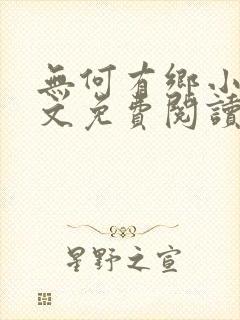 無何有鄉小
文免費閱讀
星野之宣